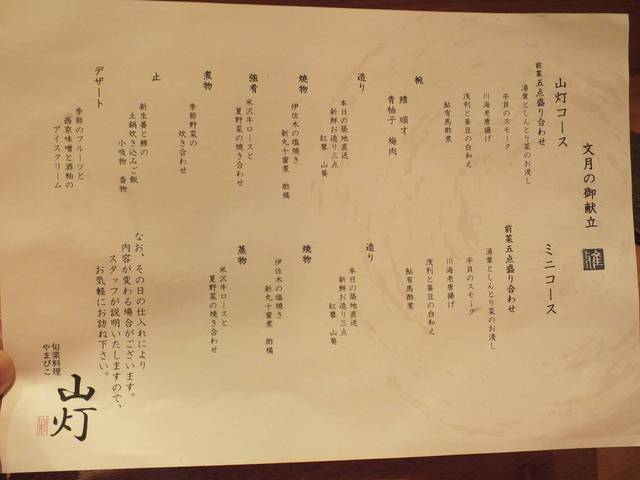 文月の御献立
山灯コース
前菜五点盛り合わせ
湯葉としんとり菜のお浸し
平貝のスモーク
川海老唐揚げ
浅利と蚕豆の白和え
鮎有馬煮
椀
鱧 順才
青柚子 梅肉
造り
本日の築地直送
新鮮お造り三点
紅蓼 山葵
焼物
伊佐木の塩焼き
新丸十蜜煮 酢橘
強肴
米沢牛ロースと
夏野菜の焼き合わせ
煮物
季節野菜の
炊き合わせ
止
新生姜と鯵の
土鍋炊き込みご飯
小吸物 香物
デザート
季節のフルーツと
西京味噌と酒粕の
アイスクリーム
ミニコース
前菜五点盛り合わせ
湯葉としんとり菜のお浸し
平貝のスモーク
川海老唐揚げ
浅利と蚕豆の白和え
鮎有馬煮
造り
本日の築地直送
新鮮お造り三点
紅蓼 山葵
焼物
伊佐木の塩焼き
新丸十蜜煮 酢橘
蒸物
米沢牛ロースと
夏野菜の焼き合わせ
なお、その日の仕入れにより
内容が変わる場合がございます。
スタッフが説明いたしますので、
お気軽にお訪ね下さい。
旬菜料理
やまびこ
山灯